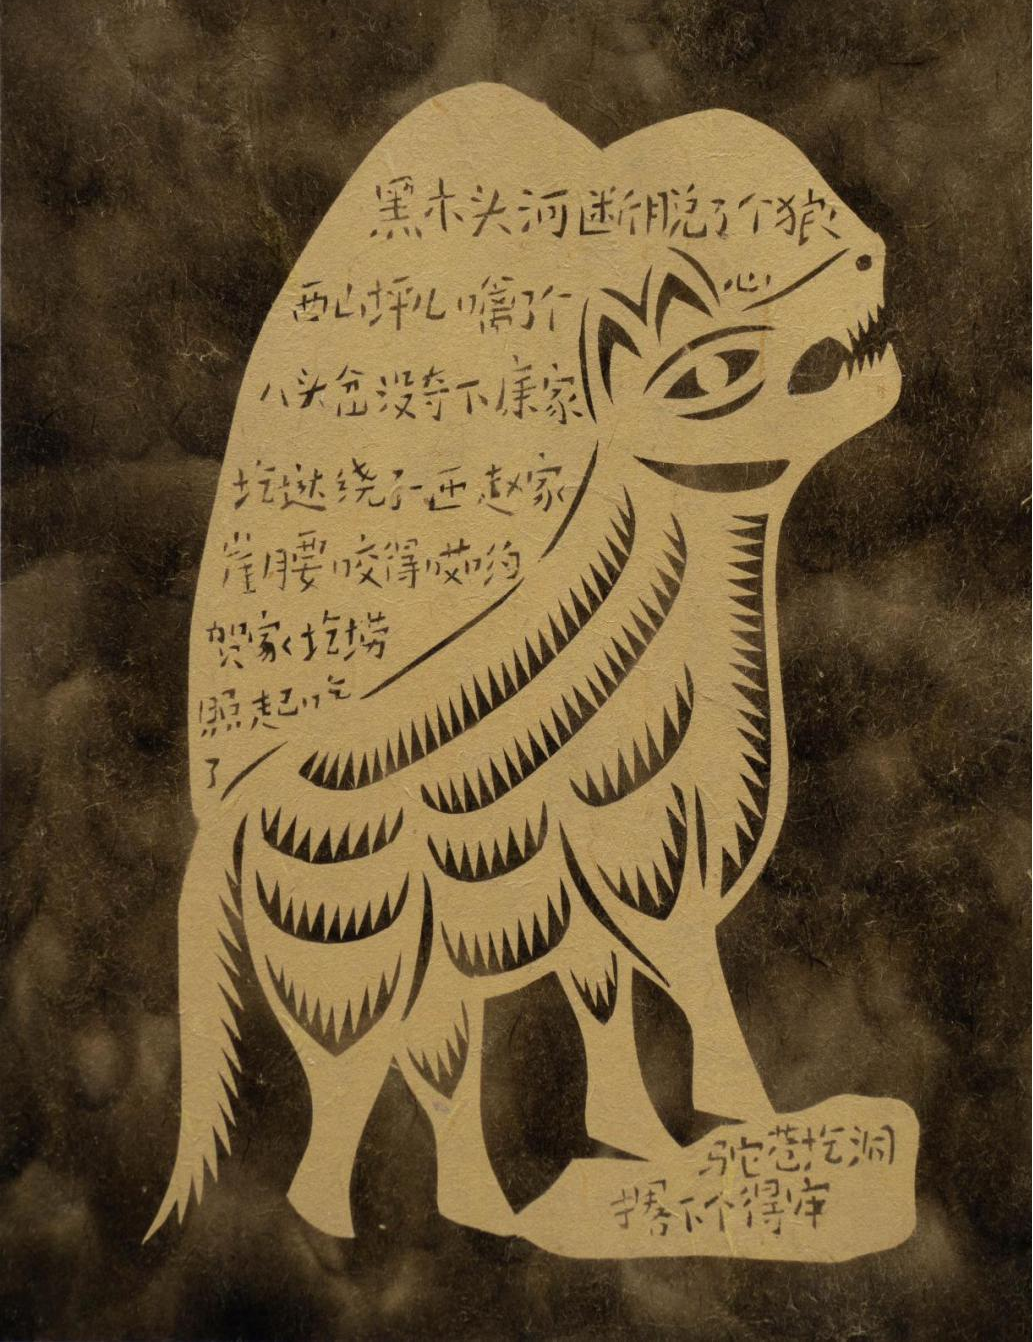 黑木头河断脱了个狼
心
西山坪儿嚼了个
八头岔没夺下康家
圪垯绕了一匝赵家
崖腰咬得哎哟
贺家圪崂
照起吃
了
驼巷圪洞
撂下个得牢